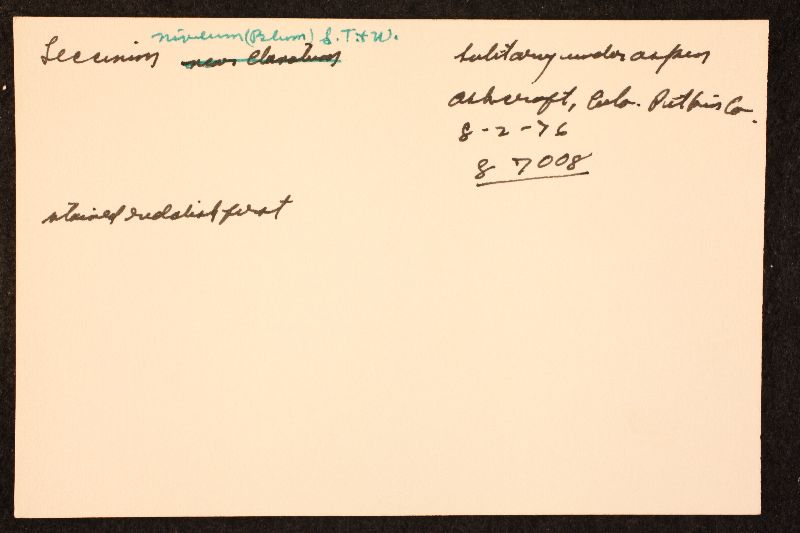 niveum (Blum) S. T. & W.
Leccinum near
solitary under aspen
Ashcroft, Colo. Pitkin Co.
8-2-76
S 7008
stained reddish first